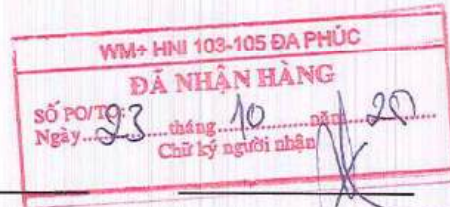 WM+ HNI 103-105 ĐA PHÚC
ĐÃ NHẬN HÀNG
SỐ PO/TO:
Ngày 23 tháng 10 năm 20
Chữ ký người nhận